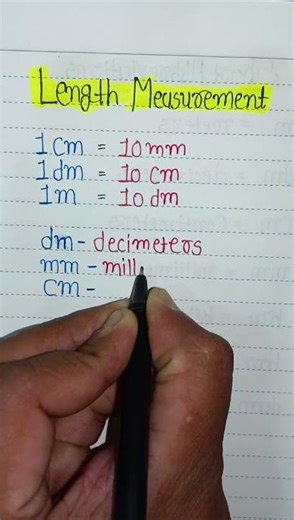 Length Measurement
1 cm = 10 mm
1 dm = 10 cm
1 m = 10 dm
dm - decimeters
mm - mill
cm -